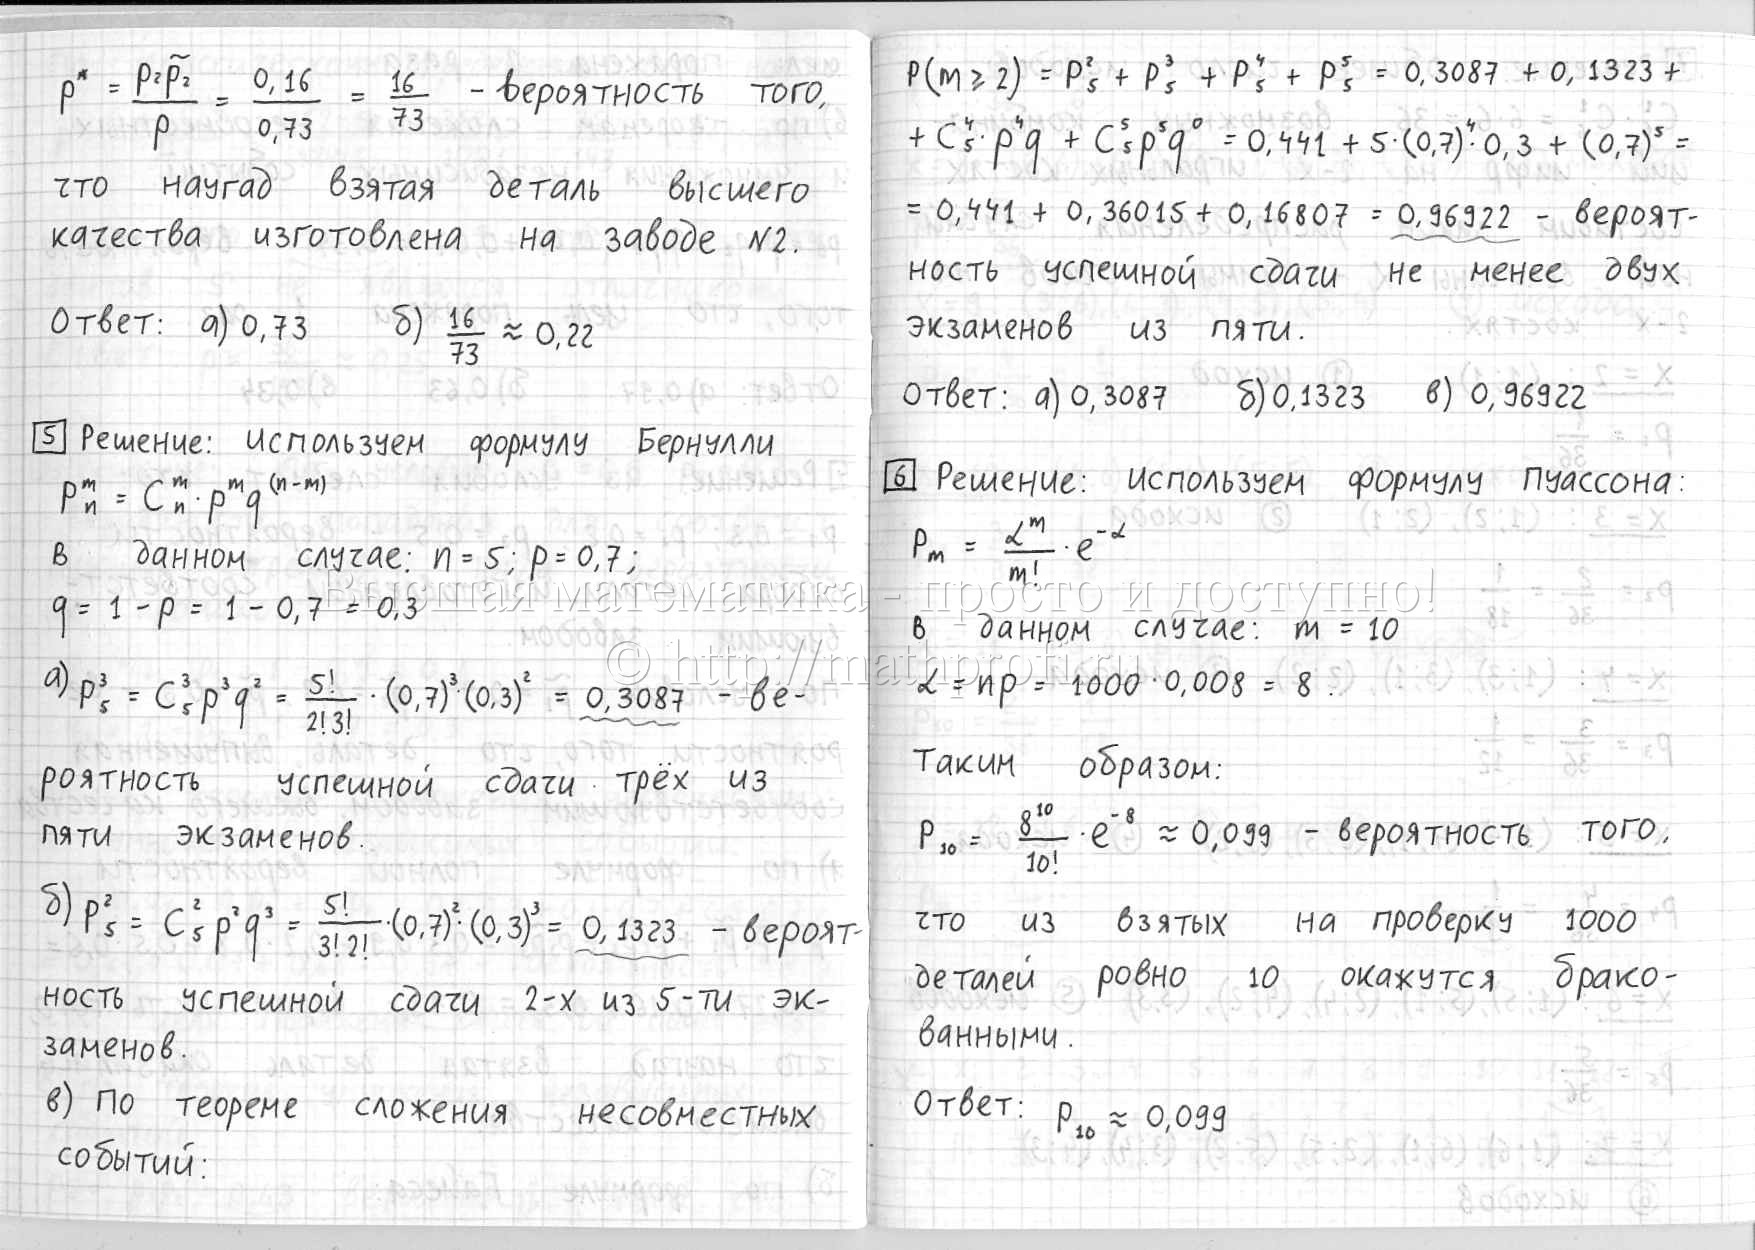 p* = p₂p̃₂/p = 0,16/0,73 = 16/73 - вероятность того,
что наугад взятая деталь высшего
качества изготовлена на заводе N2.
Ответ: а) 0,73 б) 16/73 ≈ 0,22
5 Решение: используем формулу Бернулли
Pₙᵐ = Cₙᵐ · pᵐq⁽ⁿ⁻ᵐ⁾
В данном случае: n = 5; p = 0,7;
q = 1 - p = 1 - 0,7 = 0,3
а) P₅³ = C₅³ p³ q² = 5!/2!3! · (0,7)³·(0,3)² = 0,3087 - ве-
роятность успешной сдачи трёх из
пяти экзаменов.
б) P₅² = C₅² p² q³ = 5!/3!2! · (0,7)²·(0,3)³ = 0,1323 - вероят-
ность успешной сдачи 2-х из 5-ти эк-
заменов.
в) По теореме сложения несовместных
событий:
P(m ≥ 2) = P₅² + P₅³ + P₅⁴ + P₅⁵ = 0,3087 + 0,1323 +
+ C₅⁴·p⁴q + C₅⁵p⁵q⁰ = 0,441 + 5·(0,7)⁴·0,3 + (0,7)⁵ =
= 0,441 + 0,36015 + 0,16807 = 0,96922 - вероят-
ность успешной сдачи не менее двух
экзаменов из пяти.
Ответ: а) 0,3087 б) 0,1323 в) 0,96922
6 Решение: Используем формулу Пуассона:
Pₘ = λᵐ/m! · e^(-λ)
В данном случае: m = 10
λ = np = 1000·0,008 = 8.
Таким образом:
P₁₀ = 8¹⁰/10! · e⁻⁸ ≈ 0,099 - вероятность того,
что из взятых на проверку 1000
деталей ровно 10 окажутся брако-
ванными.
Ответ: P₁₀ ≈ 0,099
Высшая математика - просто и доступно!
© http://mathprofi.ru